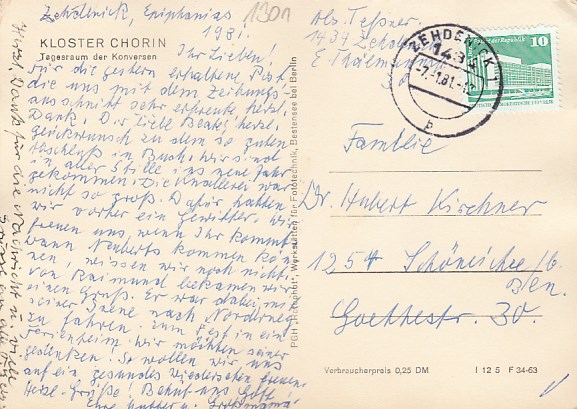 Zehdenick, Epiphanias
1981.
1301
KLOSTER CHORIN
Tagesraum der Konversen
Ihr Lieben!
Für die gestern erhaltene Post
die uns mit dem Zeitungs-
ausschnitt sehr erfreute, herzl.
Dank. Dir herzl.
Glückwunsch zu dem so guten
Abschluß in Buch. Wir sind
in aller Stille ins neue Jahr
gekommen. Die Knallerei war
nicht so groß. Dafür hatten
wir vorher ein Gewitter. Wir
freuen uns, wenn Ihr kommt
wann Neuberts kommen kön-
nen, wissen wir noch nicht.
von Raimund bekamen wir
einen Gruß. Er war dabei, mit
seiner nach
zu fahren. zum Fest in ein
Ferienheim. Wir möchten seiner
gedenken. So wollen wir uns
auf ein gesundes Wiedersehen freuen.
Herzl. Grüße! Behüt uns Gott
Eure Mutter u.
Herzl. Dank für die Nachricht u. viele
Grüße an alle
PGH
Werkstätten für Fototechnik, Bestensee bei Berlin
Abs. Teßner,
1434 Zehdenick
ZEHDENICK 1
1434
-7.-1.81.-
b
10
Familie
Dr. Hubert Kirchner
1254 Schöneiche/b.
Bln.
Goethestr. 30.
Verbraucherpreis 0,25 DM
I 12 5 F 34-63